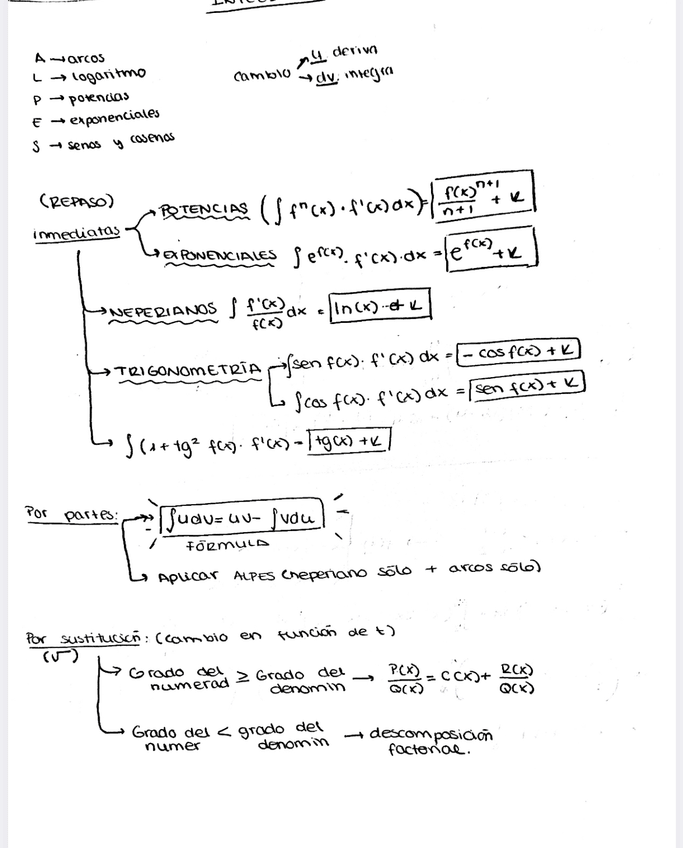 A → arcos
L → logaritmo
P → potencias
E → exponenciales
S → senos y cosenos
cambio ↗ u deriva
→ dv. integra
(REPASO)
inmediatas
POTENCIAS (∫ fⁿ(x) · f'(x) dx) = f(x)ⁿ⁺¹/n+1 + K
EXPONENCIALES ∫ e^f(x) · f'(x) · dx = e^f(x) + K
NEPERIANOS ∫ f'(x)/f(x) dx = ln(x) + K
TRIGONOMETRÍA → ∫sen f(x) · f'(x) dx = - cos f(x) + K
↳ ∫cos f(x) · f'(x) dx = sen f(x) + K
↳ ∫(1 + tg² f(x) · f'(x) = tg(x) + K
Por partes: → ∫udv = uv - ∫vdu
FÓRMULA
↳ Aplicar ALPES (neperiano sólo + arcos sólo)
Por sustitución: (cambio en función de t)
(√)
↳ Grado del numerad ≥ Grado del denomin → P(x)/Q(x) = C(x) + R(x)/Q(x)
↳ Grado del numer < grado del denomin → descomposición factorial.